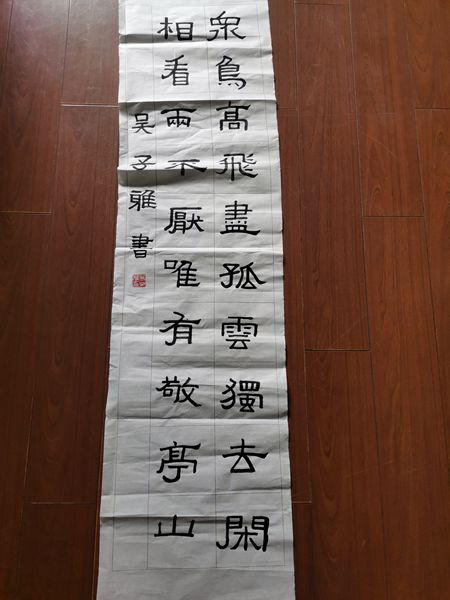 眾鳥高飛盡孤雲獨去閑
相看兩不厭唯有敬亭山
吴子雅書